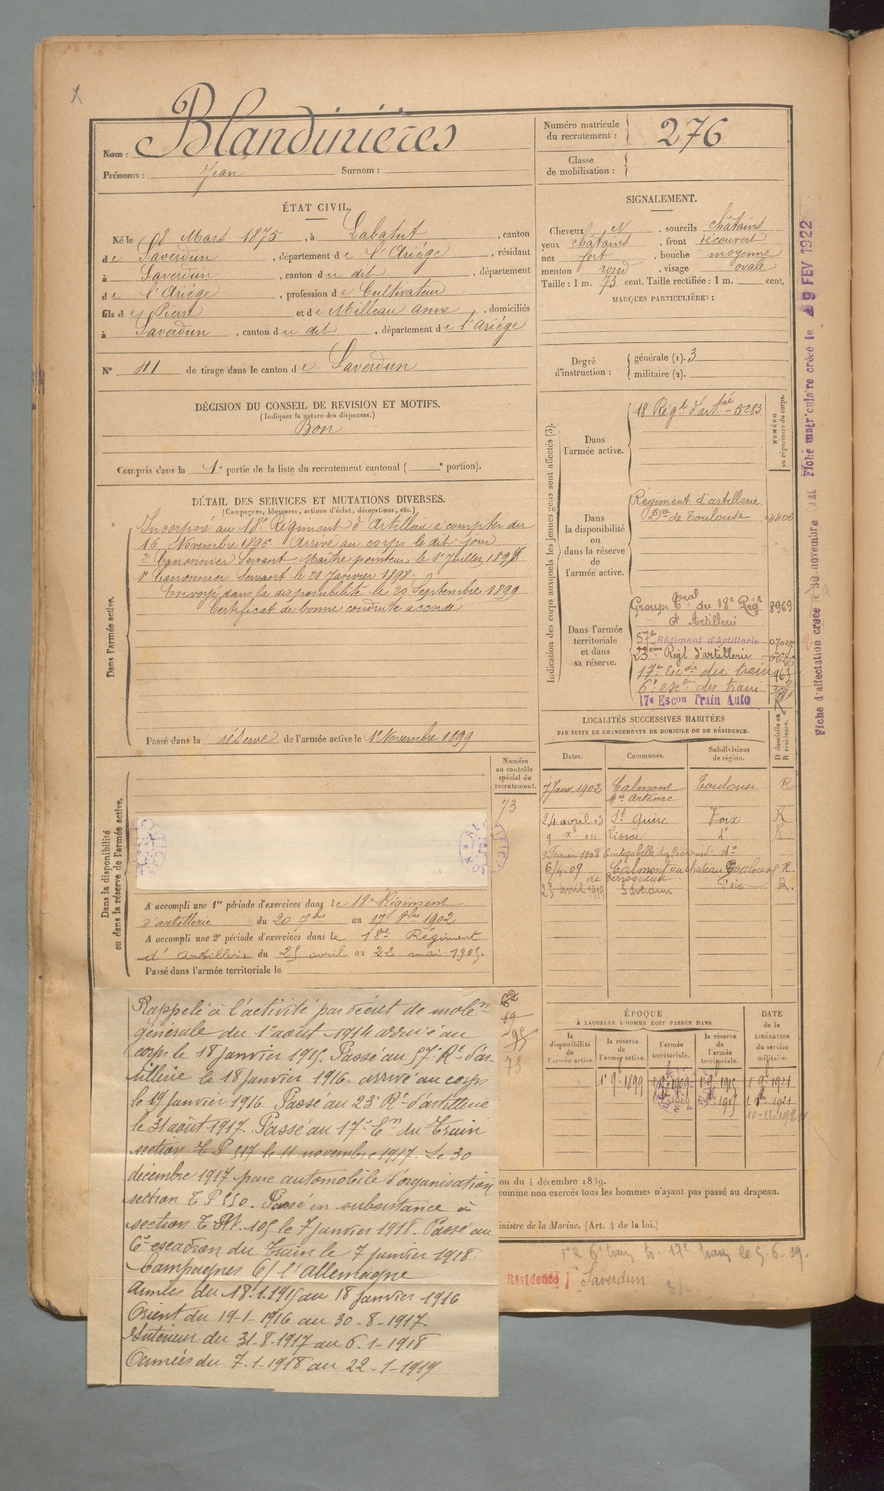 Nom : Blandinières
Prénoms : Jean Surnom :
ÉTAT CIVIL.
Né le 8 Mars 1875, à Labatut, canton
de Saverdun, département de l'Ariège, résidant
à Saverdun, canton du dit, département
de l'Ariège, profession de Cultivateur
fils de Pierre et de Milleau Anne, domiciliés
à Saverdun, canton du dit, département de l'Ariége
N° 41 de tirage dans le canton de Saverdun
DÉCISION DU CONSEIL DE REVISION ET MOTIFS.
(Indiquer la nature des dispenses.)
Bon
Compris dans la 1e partie de la liste du recrutement cantonal ( e portion).
DÉTAIL DES SERVICES ET MUTATIONS DIVERSES.
(Campagnes, blessures, actions d'éclat, décorations, etc.)
Dans l'armée active.
Incorporé au 18e Régiment d'Artillerie à compter du
16 Novembre 1896 Arrivé au corps le dit jour
2e Canonnier Servant Maître pointeur le 1er Juillet 1897
1er Canonnier Servant le 21 Janvier 1898.
Envoyé dans la disponibilité le 29 Septembre 1899
Certificat de bonne conduite accordé
Passé dans la réserve de l'armée active le 1er Novembre 1899
Numéro au contrôle spécial du recrutement.
73
Dans la disponibilité ou dans la réserve de l'armée active.
A accompli une 1re période d'exercices dans le 18e Régiment
d'artillerie du 20 7bre au 17 8bre 1902
A accompli une 2e période d'exercices dans le 18e Régiment
d'artillerie du 25 avril au 22 mai 1905.
Passé dans l'armée territoriale le
Rappelé à l'activité par décret de mobon
générale du 1er août 1914 arrivé au
corps le 18 janvier 1915. Passé au 57e Rt d'ar
tillerie le 18 janvier 1916. arrivé au corps
le 19 janvier 1916. Passé au 23e Rt d'artillerie
le 31 août 1917. Passé au 17e Eon du Train
section T P 517 le 11 novembre 1917. Le 30
décembre 1917 parc automobile d'organisation
section T P 550. Passé en subsistance à
section T.M. 105 le 7 janvier 1918. Passé au
6e escadron du Train le 7 janvier 1918.
Campagnes C/ l'Allemagne
Armées du 18.1.1915 au 18 janvier 1916
Orient du 19-1-1916 au 30-8-1917
Intérieur du 31-8-1917 au 6-1-1918
Armées du 7-1-1918 au 22-1-1919
Numéro matricule du recrutement : 276
Classe de mobilisation :
SIGNALEMENT.
Cheveux N, sourcils châtains
yeux châtains, front découvert
nez fort, bouche moyenne
menton rond, visage ovale
Taille : 1 m. 73 cent. Taille rectifiée : 1 m. cent.
MARQUES PARTICULIÈRES :
Degré d'instruction : générale (1). 3
militaire (2).
Indication des corps auxquels les jeunes gens sont affectés (3).
NUMÉRO au répertoire du corps.
Dans l'armée active.
18 Régt d'artie 5283
Dans la disponibilité ou dans la réserve de l'armée active.
Régiment d'artillerie
Don de Toulouse 4406
Dans l'armée territoriale et dans sa réserve.
Groupe Tral du 18e Régt 8969
d'Artillerie
57e Régiment d'Artillerie
23ème Régt d'artillerie
17e Escon du train
6e escon du train
17e Escon Train Auto
LOCALITÉS SUCCESSIVES HABITÉES
PAR SUITE DE CHANGEMENTS DE DOMICILE OU DE RÉSIDENCE.
Dates. Communes. Subdivisions de région. D domicile ou R résidence.
7 Janv 1902 Calmont Toulouse R
24 avril 03 St Quirc Foix R
9 Xe 04 Lissac do R
6/4-09 Calmont au château Toulouse R.
23 avril 1910 Saverdun Foix R.
ÉPOQUE
À LAQUELLE L'HOMME DOIT PASSER DANS
la disponibilité de l'armée active.
la réserve de l'armée active.
l'armée territoriale.
la réserve de l'armée territoriale.
DATE de la LIBÉRATION du service militaire.
1r 9e 1899
on du 4 décembre 1889.
comme non exercés tous les hommes n'ayant pas passé au drapeau.
inistre de la Marine. (Art. 4 de la loi.)
Résidence Saverdun
Fiche matriculaire créée le 9 FEV 1922
Fiche d'affectation créée